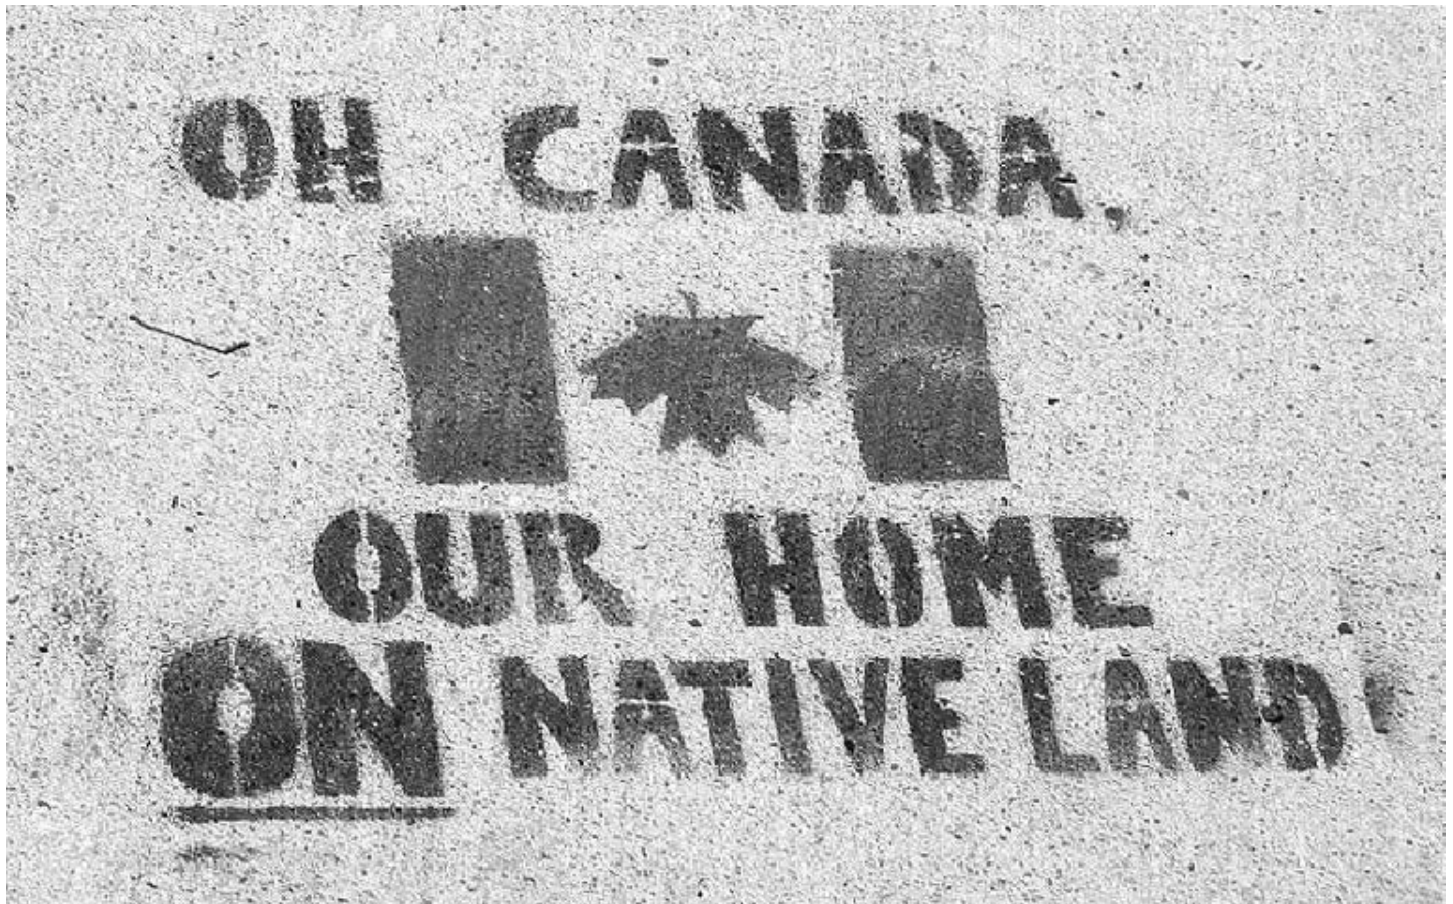 OH CANADA,
OUR HOME
ON NATIVE LAND